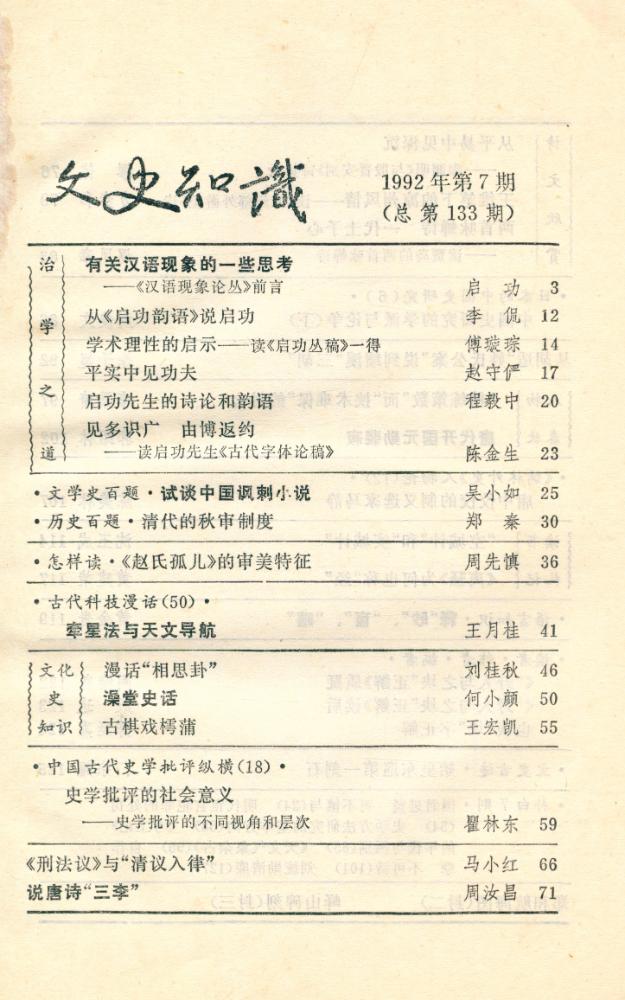 文史知識
1992年第7期
(总第133期)
治学之道
有关汉语现象的一些思考
——《汉语现象论丛》前言 启功 3
从《启功韵语》说启功 李侃 12
学术理性的启示——读《启功丛稿》一得 傅璇琮 14
平实中见功夫 赵守俨 17
启功先生的诗论和韵语 程毅中 20
见多识广 由博返约
——读启功先生《古代字体论稿》 陈金生 23
·文学史百题·试谈中国讽刺小说 吴小如 25
·历史百题·清代的秋审制度 郑秦 30
·怎样读·《赵氏孤儿》的审美特征 周先慎 36
·古代科技漫话(50)·
牵星法与天文导航 王月桂 41
文化史知识
漫话“相思卦” 刘桂秋 46
澡堂史话 何小颜 50
古棋戏樗蒲 王宏凯 55
·中国古代史学批评纵横(18)·
史学批评的社会意义
——史学批评的不同视角和层次 瞿林东 59
《刑法议》与“清议入律” 马小红 66
说唐诗“三李” 周汝昌 71